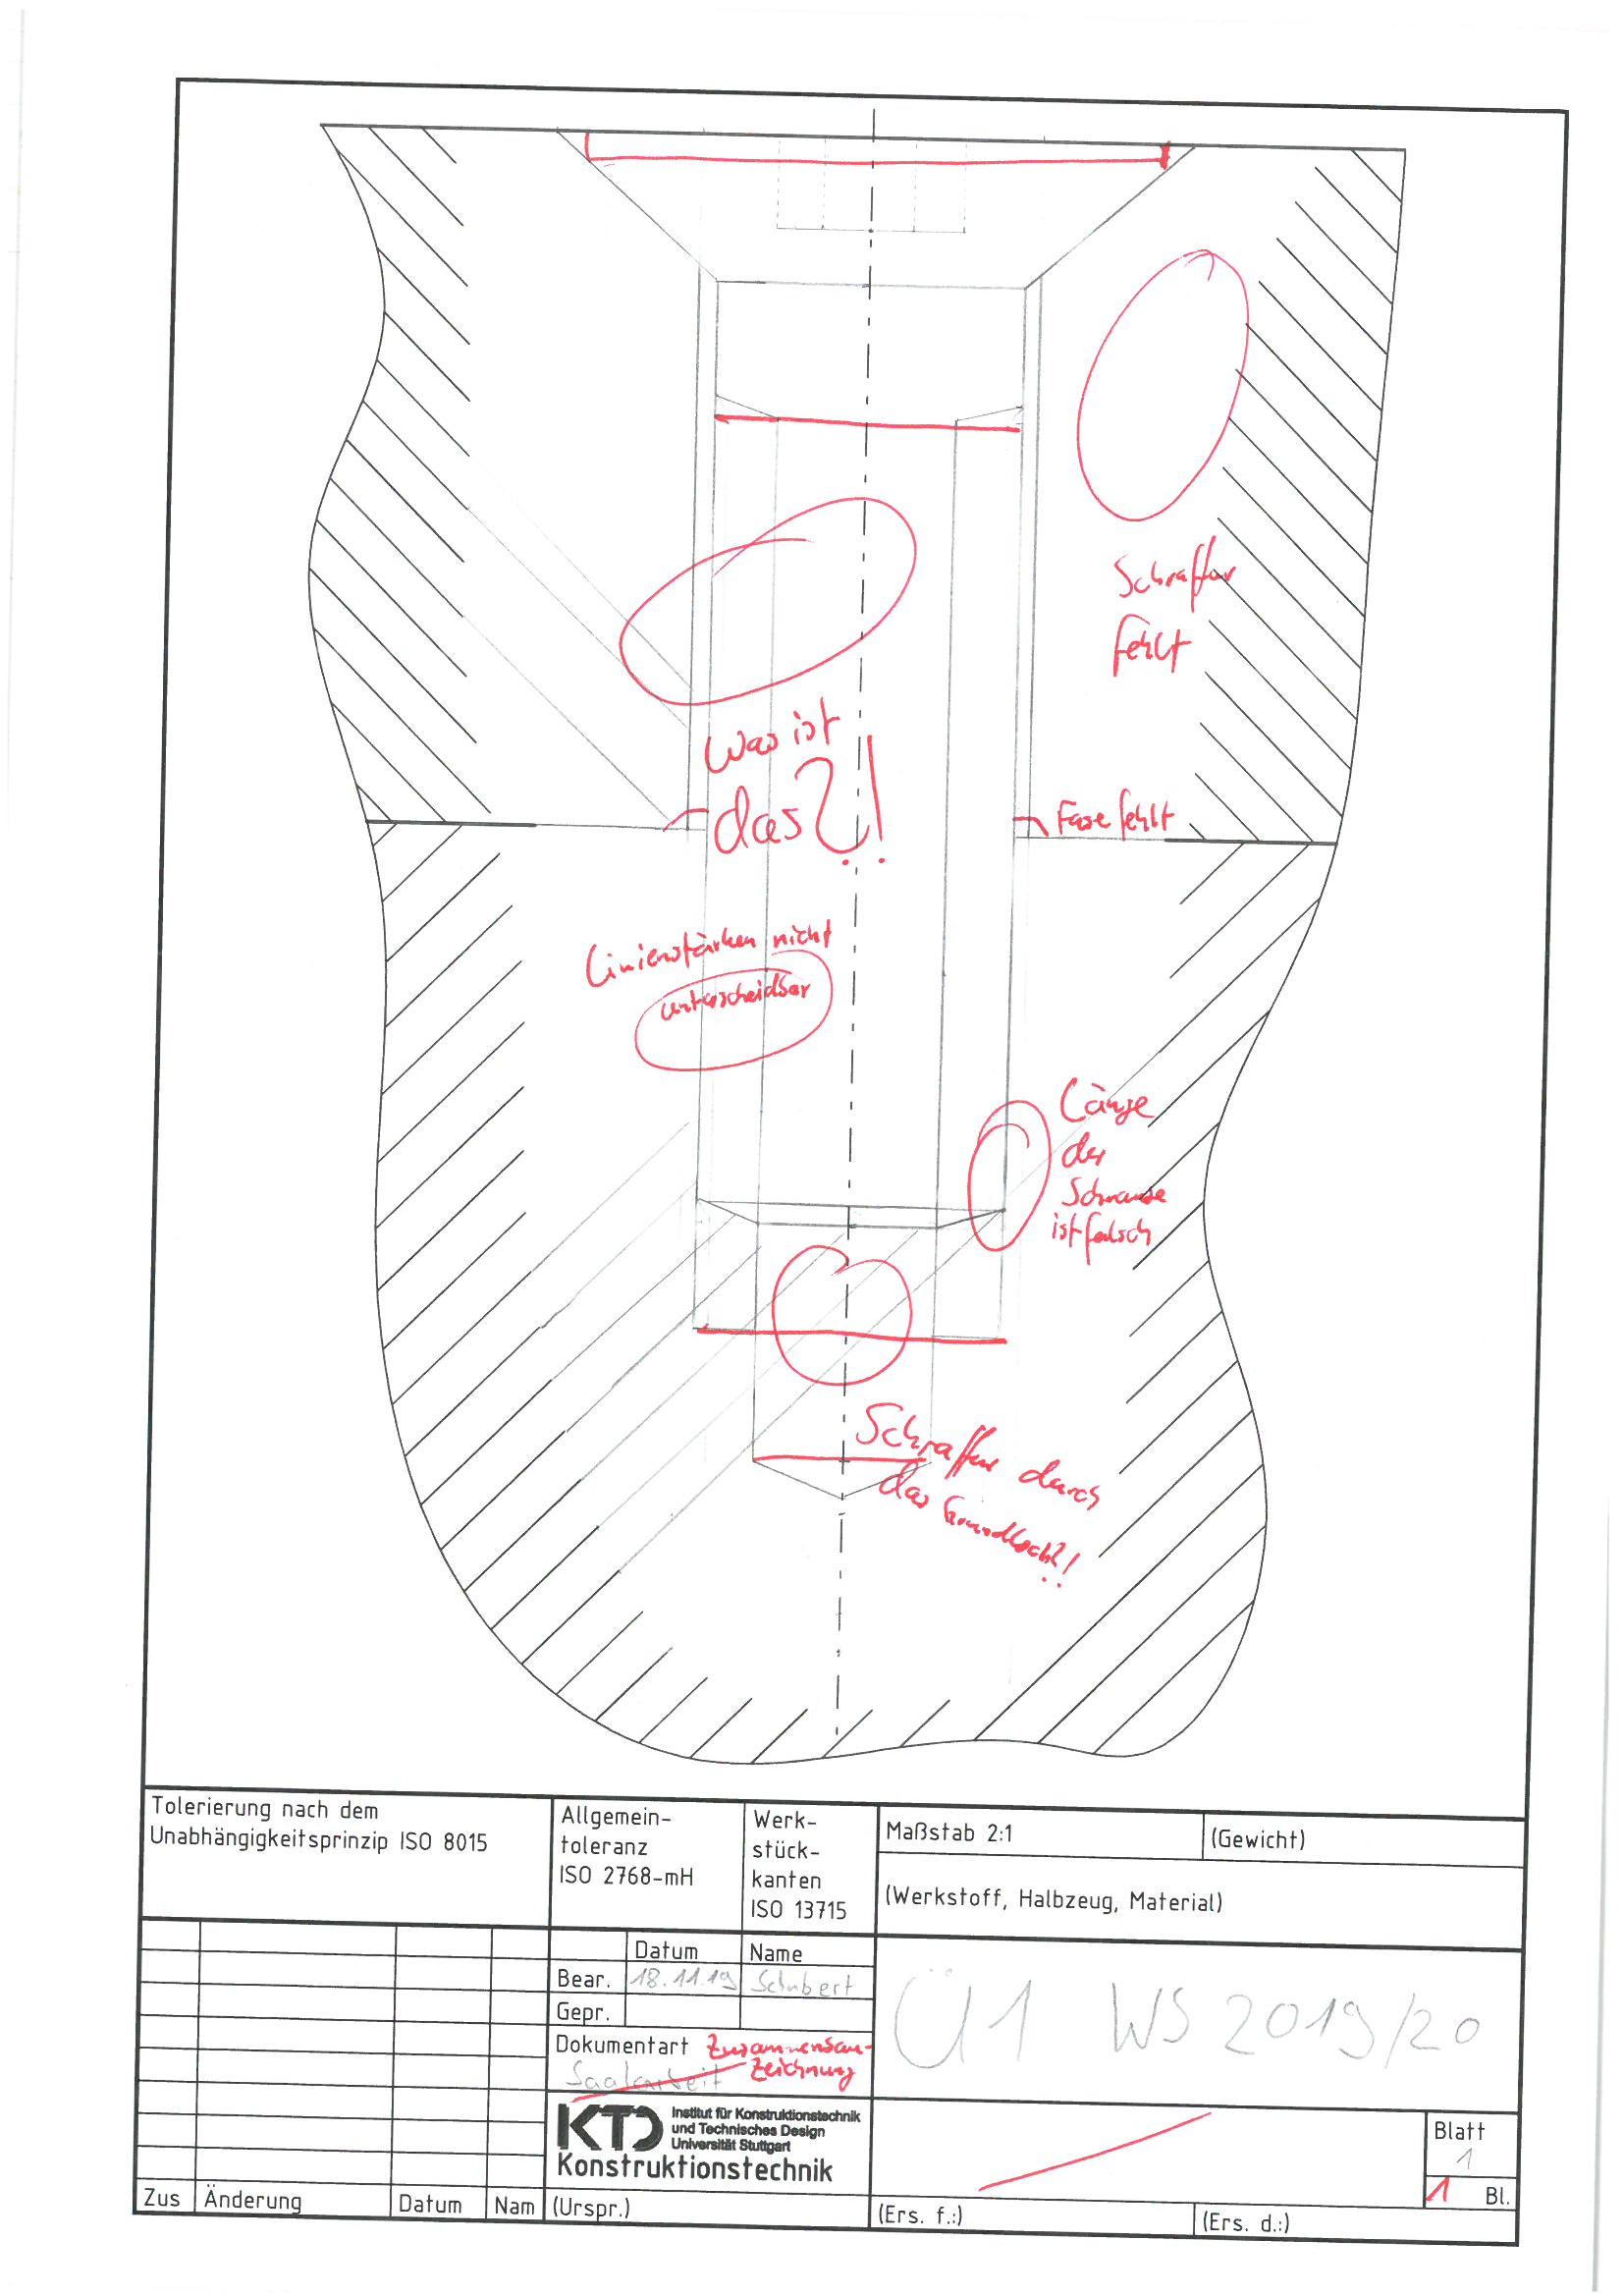 Schraffur
fehlt
Was ist
das?!
Fase fehlt
Linienstärken nicht
unterscheidbar
Länge
der
Schraube
ist falsch
Schraffur durch
das Grundloch?!
Tolerierung nach dem
Unabhängigkeitsprinzip ISO 8015
Allgemein-
toleranz
ISO 2768-mH
Werk-
stück-
kanten
ISO 13715
Maßstab 2:1
(Gewicht)
(Werkstoff, Halbzeug, Material)
Datum
Name
Bear.
18.11.19
Schubert
Gepr.
Ü1 WS 2019/20
Dokumentart
Zusammenbau-
zeichnung
Saalarbeit
KTD
Institut für Konstruktionstechnik
und Technisches Design
Universität Stuttgart
Konstruktionstechnik
Blatt
1
1 Bl.
Zus
Änderung
Datum
Nam
(Urspr.)
(Ers. f.:)
(Ers. d.:)